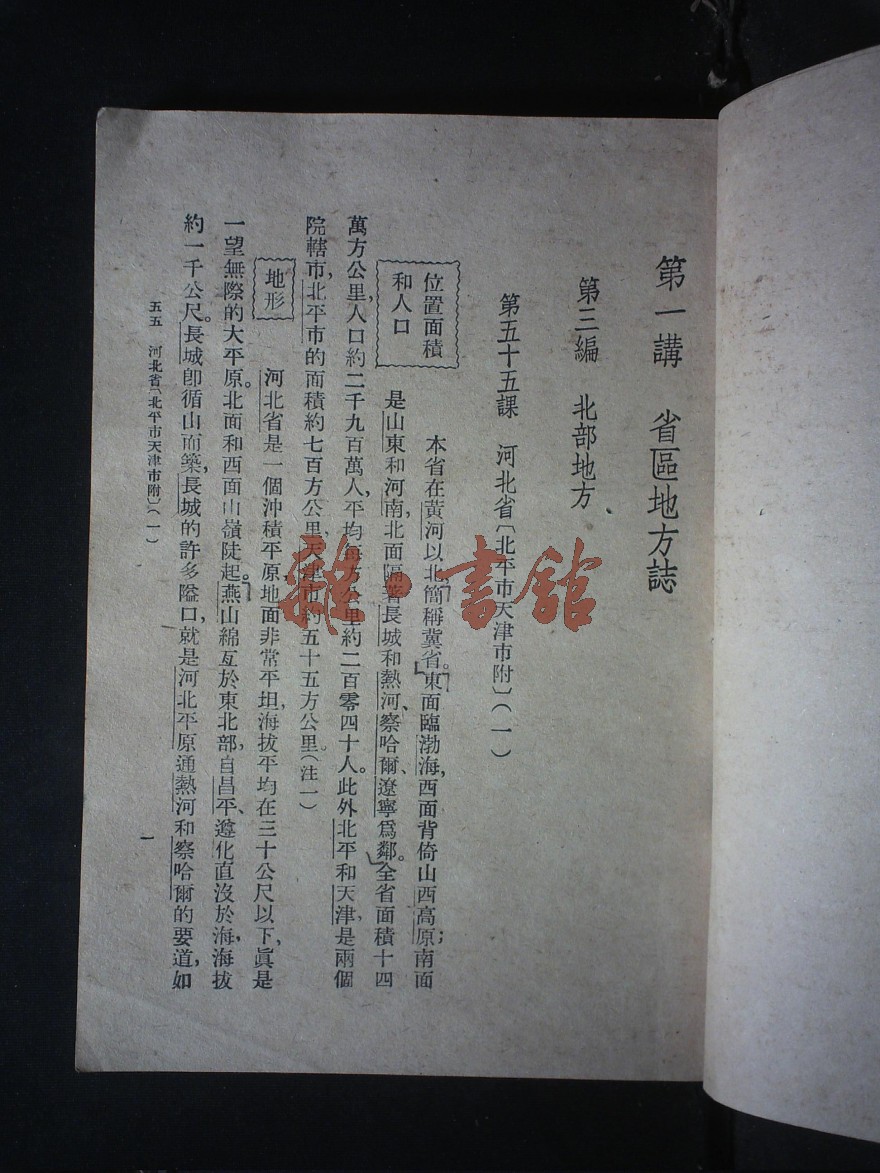 第一講 省區地方誌
第三編 北部地方
第五十五課 河北省〔北平市天津市附〕(一)
位置面積
和人口
本省在黃河以北,簡稱冀省。東面臨渤海,西面背倚山西高原;南面
是山東和河南,北面隔著長城和熱河、察哈爾、遼寧爲鄰。全省面積十四
萬方公里,人口約二千九百萬人,平均每方公里約二百零四十人。此外北平和天津,是兩個
院轄市,北平市的面積約七百方公里,天津市約五十五方公里。(注一)
地形
河北省是一個沖積平原,地面非常平坦,海拔平均在三十公尺以下,眞是
一望無際的大平原。北面和西面山嶺陡起。燕山綿亙於東北部,自昌平、遵化直沒於海,海拔
約一千公尺。長城卽循山而築,長城的許多隘口,就是河北平原通熱河和察哈爾的要道,如
五五 河北省〔北平市天津市附〕(一)
一
雜·書館